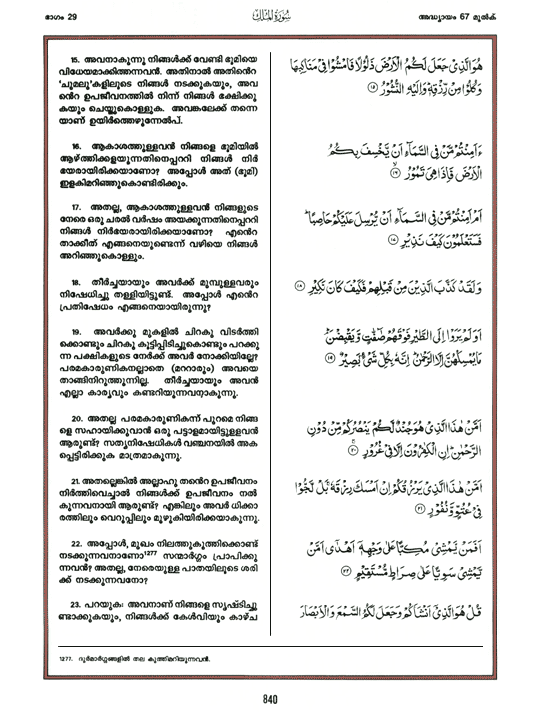 ഭാഗം 29
سُورَةُ الْمُلْك
അദ്ധ്യായം 67 മുൽക്
15. അവനാകുന്നു നിങ്ങൾക്ക് വേണ്ടി ഭൂമിയെ
വിധേയമാക്കിത്തന്നവൻ. അതിനാൽ അതിന്റെ
ചുമലുകളിലൂടെ നിങ്ങൾ നടക്കുകയും, അവ
ന്റെ ഉപജീവനത്തിൽ നിന്ന് നിങ്ങൾ ഭക്ഷിക്കു
കയും ചെയ്തുകൊള്ളുക. അവങ്കലേക്ക് തന്നെ
യാണ് ഉയിർത്തെഴുന്നേൽപ്.
16. ആകാശത്തുള്ളവൻ നിങ്ങളെ ഭൂമിയിൽ
ആഴ്ത്തിക്കളയുന്നതിനെപ്പററി നിങ്ങൾ നിർ
ഭയരായിരിക്കയാണോ? അപ്പോൾ അത് (ഭൂമി)
ഇളകിമറിഞ്ഞുകൊണ്ടിരിക്കും.
17. അതല്ല, ആകാശത്തുള്ളവൻ നിങ്ങളുടെ
നേരെ ഒരു ചരൽ വർഷം അയക്കുന്നതിനെപ്പററി
നിങ്ങൾ നിർഭയരായിരിക്കയാണോ? എന്റെ
താക്കീത് എങ്ങനെയുണ്ടെന്ന് വഴിയെ നിങ്ങൾ
അറിഞ്ഞുകൊള്ളും.
18. തീർച്ചയായും അവർക്ക് മുമ്പുള്ളവരും
നിഷേധിച്ചു തള്ളിയിട്ടുണ്ട്. അപ്പോൾ എന്റെ
പ്രതിഷേധം എങ്ങനെയായിരുന്നു?
19. അവർക്കു മുകളിൽ ചിറകു വിടർത്തി
ക്കൊണ്ടും ചിറകു കൂട്ടിപ്പിടിച്ചുകൊണ്ടും പറക്കു
ന്ന പക്ഷികളുടെ നേർക്ക് അവർ നോക്കിയില്ലേ?
പരമകാരുണികനല്ലാതെ (മററാരും) അവയെ
താങ്ങിനിറുത്തുന്നില്ല. തീർച്ചയായും അവൻ
എല്ലാ കാര്യവും കണ്ടറിയുന്നവനാകുന്നു.
20. അതല്ല പരമകാരുണികന്ന് പുറമെ നിങ്ങ
ളെ സഹായിക്കുവാൻ ഒരു പട്ടാളമായിട്ടുള്ളവൻ
ആരുണ്ട്? സത്യനിഷേധികൾ വഞ്ചനയിൽ അക
പ്പെട്ടിരിക്കുക മാത്രമാകുന്നു.
21. അതല്ലെങ്കിൽ അല്ലാഹു തന്റെ ഉപജീവനം
നിർത്തിവെച്ചാൽ നിങ്ങൾക്ക് ഉപജീവനം നൽ
കുന്നവനായി ആരുണ്ട്? എങ്കിലും അവർ ധിക്കാ
രത്തിലും വെറുപ്പിലും മുഴുകിയിരിക്കയാകുന്നു.
22. അപ്പോൾ, മുഖം നിലത്തുകുത്തിക്കൊണ്ട്
നടക്കുന്നവനാണോ1277 സന്മാർഗ്ഗം പ്രാപിക്കു
ന്നവൻ? അതല്ല, നേരെയുള്ള പാതയിലൂടെ ശരി
ക്ക് നടക്കുന്നവനോ?
23. പറയുക: അവനാണ് നിങ്ങളെ സൃഷ്ടിച്ചു
ണ്ടാക്കുകയും, നിങ്ങൾക്ക് കേൾവിയും കാഴ്ച
هُوَ الَّذِي جَعَلَ لَكُمُ الْأَرْضَ ذَلُولًا فَامْشُوا فِي مَنَاكِبِهَا
وَكُلُوا مِن رِّزْقِهِ وَإِلَيْهِ النُّشُورُ ﴿١٥﴾
ءَأَمِنتُم مَّن فِي السَّمَاءِ أَن يَخْسِفَ بِكُمُ
الْأَرْضَ فَإِذَا هِيَ تَمُورُ ﴿١٦﴾
أَمْ أَمِنتُم مَّن فِي السَّمَاءِ أَن يُرْسِلَ عَلَيْكُمْ حَاصِبًا
فَسَتَعْلَمُونَ كَيْفَ نَذِيرِ ﴿١٧﴾
وَلَقَدْ كَذَّبَ الَّذِينَ مِن قَبْلِهِمْ فَكَيْفَ كَانَ نَكِيرِ ﴿١٨﴾
أَوَلَمْ يَرَوْا إِلَى الطَّيْرِ فَوْقَهُمْ صَافَّاتٍ وَيَقْبِضْنَ
مَا يُمْسِكُهُنَّ إِلَّا الرَّحْمَٰنُ إِنَّهُ بِكُلِّ شَيْءٍ بَصِيرٌ ﴿١٩﴾
أَمَّنْ هَٰذَا الَّذِي هُوَ جُندٌ لَّكُمْ يَنصُرُكُم مِّن دُونِ
الرَّحْمَٰنِ إِنِ الْكَافِرُونَ إِلَّا فِي غُرُورٍ ﴿٢٠﴾
أَمَّنْ هَٰذَا الَّذِي يَرْزُقُكُمْ إِنْ أَمْسَكَ رِزْقَهُ بَل لَّجُّوا
فِي عُتُوٍّ وَنُفُورٍ ﴿٢١﴾
أَفَمَن يَمْشِي مُكِبًّا عَلَىٰ وَجْهِهِ أَهْدَىٰ أَمَّن
يَمْشِي سَوِيًّا عَلَىٰ صِرَاطٍ مُّسْتَقِيمٍ ﴿٢٢﴾
قُلْ هُوَ الَّذِي أَنشَأَكُمْ وَجَعَلَ لَكُمُ السَّمْعَ وَالْأَبْصَارَ
1277. ദുർമാർഗ്ഗങ്ങളിൽ തല കുത്തിമറിയുന്നവൻ.
840